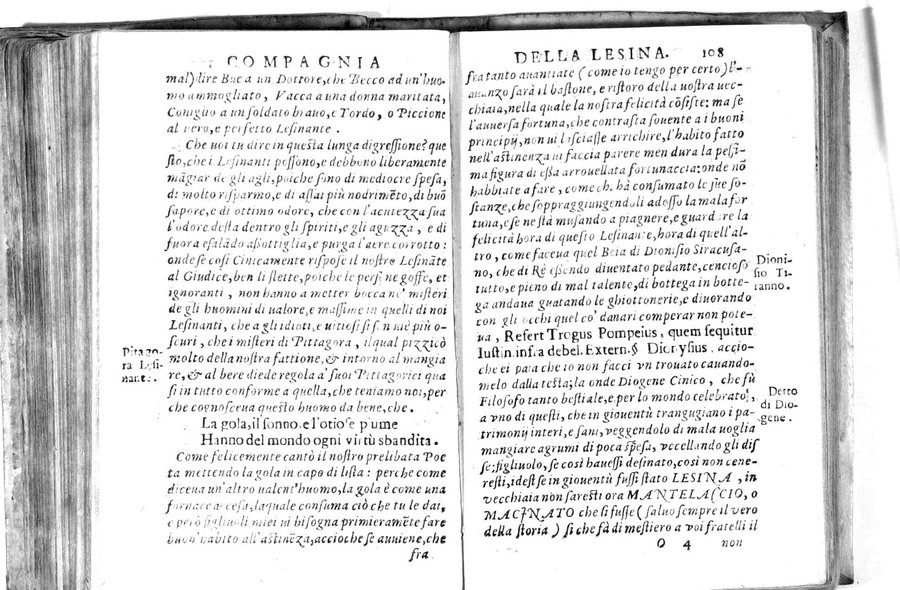 COMPAGNIA
mal) dire Buc a un Dottore, che Becco ad un'huo-
mo ammogliato, Vacca a una donna maritata,
Coniglio a un soldato brauo, e Tordo, o Piccione
al vero, e perfetto Lesinante.
Che uoi tu dire in questa lunga digressione? que
sto, che i Lesinanti possono, e debbono liberamente
mãgiar de gli agli, poiche sono di mediocre spesa,
di molto risparmo, e di assai più nodrimẽto, di buõ
sapore, e di ottimo odore, che con l'acutezza sua
l'odore desta dentro gli spiriti, e gli aguzza, e di
fuora esalãdo assottiglia, e purga l'aere corrotto:
onde se così Cinicamente rispose il nostro Lesinãte
al Giudice, ben li stette, poiche le persone goffe, et
ignoranti, non hanno a metter bocca ne' misteri
de gli huomini di ualore, e massime in quelli di noi
Lesinanti, che a gli idioti, e uitiosi si son niẽ più o-
scuri, che i misteri di Pittagora, il qual pizzicò
molto della nostra fattione, & intorno al mangia
re, & al bere diede regola a' suoi Pittagorici qua
si in tutto conforme a quella, che teniamo noi, per
che cognosceua questo huomo da bene, che.
La gola, il sonno, e l'otiose piume
Hanno del mondo ogni virtù sbandita.
Come felicemente cantò il nostro prelibata Poe
ta mettendo la gola in capo di lista: perche come
diceua un'altro ualent'huomo, la gola è come una
fornace accesa, laquale consuma ciò che tu le dai,
e però figliuoli miei ui bisogna primieramẽte fare
buon'habito all'astinẽza, accioche se auuiene, che
fra
Pitago-
ra Lesi-
nante.
DELLA LESINA. 108
fra tanto auanziate (come io tengo per certo) l'-
auanzo sarà il bastone, e ristoro della uostra uec-
chiaia, nella quale la nostra felicità cõsiste: ma se
l'auuersa fortuna, che contrasta souente a i buoni
principij, non ui lasciasse arrichire, l'habito fatto
nell'astinenza ui faccia parere men dura la pessi-
ma figura di essa arrouellata fortunaccia: onde nõ
habbiate a fare, come ch. hà consumato le sue so-
stanze, che sopraggiungendoli adosso la mala for
tuna, e se ne stà musando a piagnere, e guardare la
felicità hora di questo Lesinante, hora di quell'al-
tro, come faceua quel Beia di Dionisio Siracusa-
no, che di Rè essendo diuentato pedante, cencioso
tutto, e pieno di mal talente, di bottega in botte-
ga andaua guatando le ghiottonerie, e diuorando
con gli occhi quel co' danari comperar non pote-
ua, Refert Trogus Pompeius, quem sequitur
Iustin. infra debel. Extern. § Dionysius. accio-
che ei paia che io non facci vn trouato cauando-
melo dalla testa; la onde Diogene Cinico, che fù
Filosofo tanto bestiale, e per lo mondo celebrato,
a vno di questi, che in giouentù trangugiano i pa-
trimonij interi, e sani, veggendolo di mala uoglia
mangiare agrumi di poca spesa, vccellando gli dis
se; figliuolo, se così hauessi desinato, così non cene-
resti, idest se in giouentù fussi stato LESINA, in
vecchiaia non saresti ora MANTELACCIO, o
MACINATO che si fusse (saluo sempre il vero
della storia) si che fà di mestiero a voi fratelli il
O 4 non
Dioni-
sio Ti-
ranno.
Detto
di Dio-
gene.